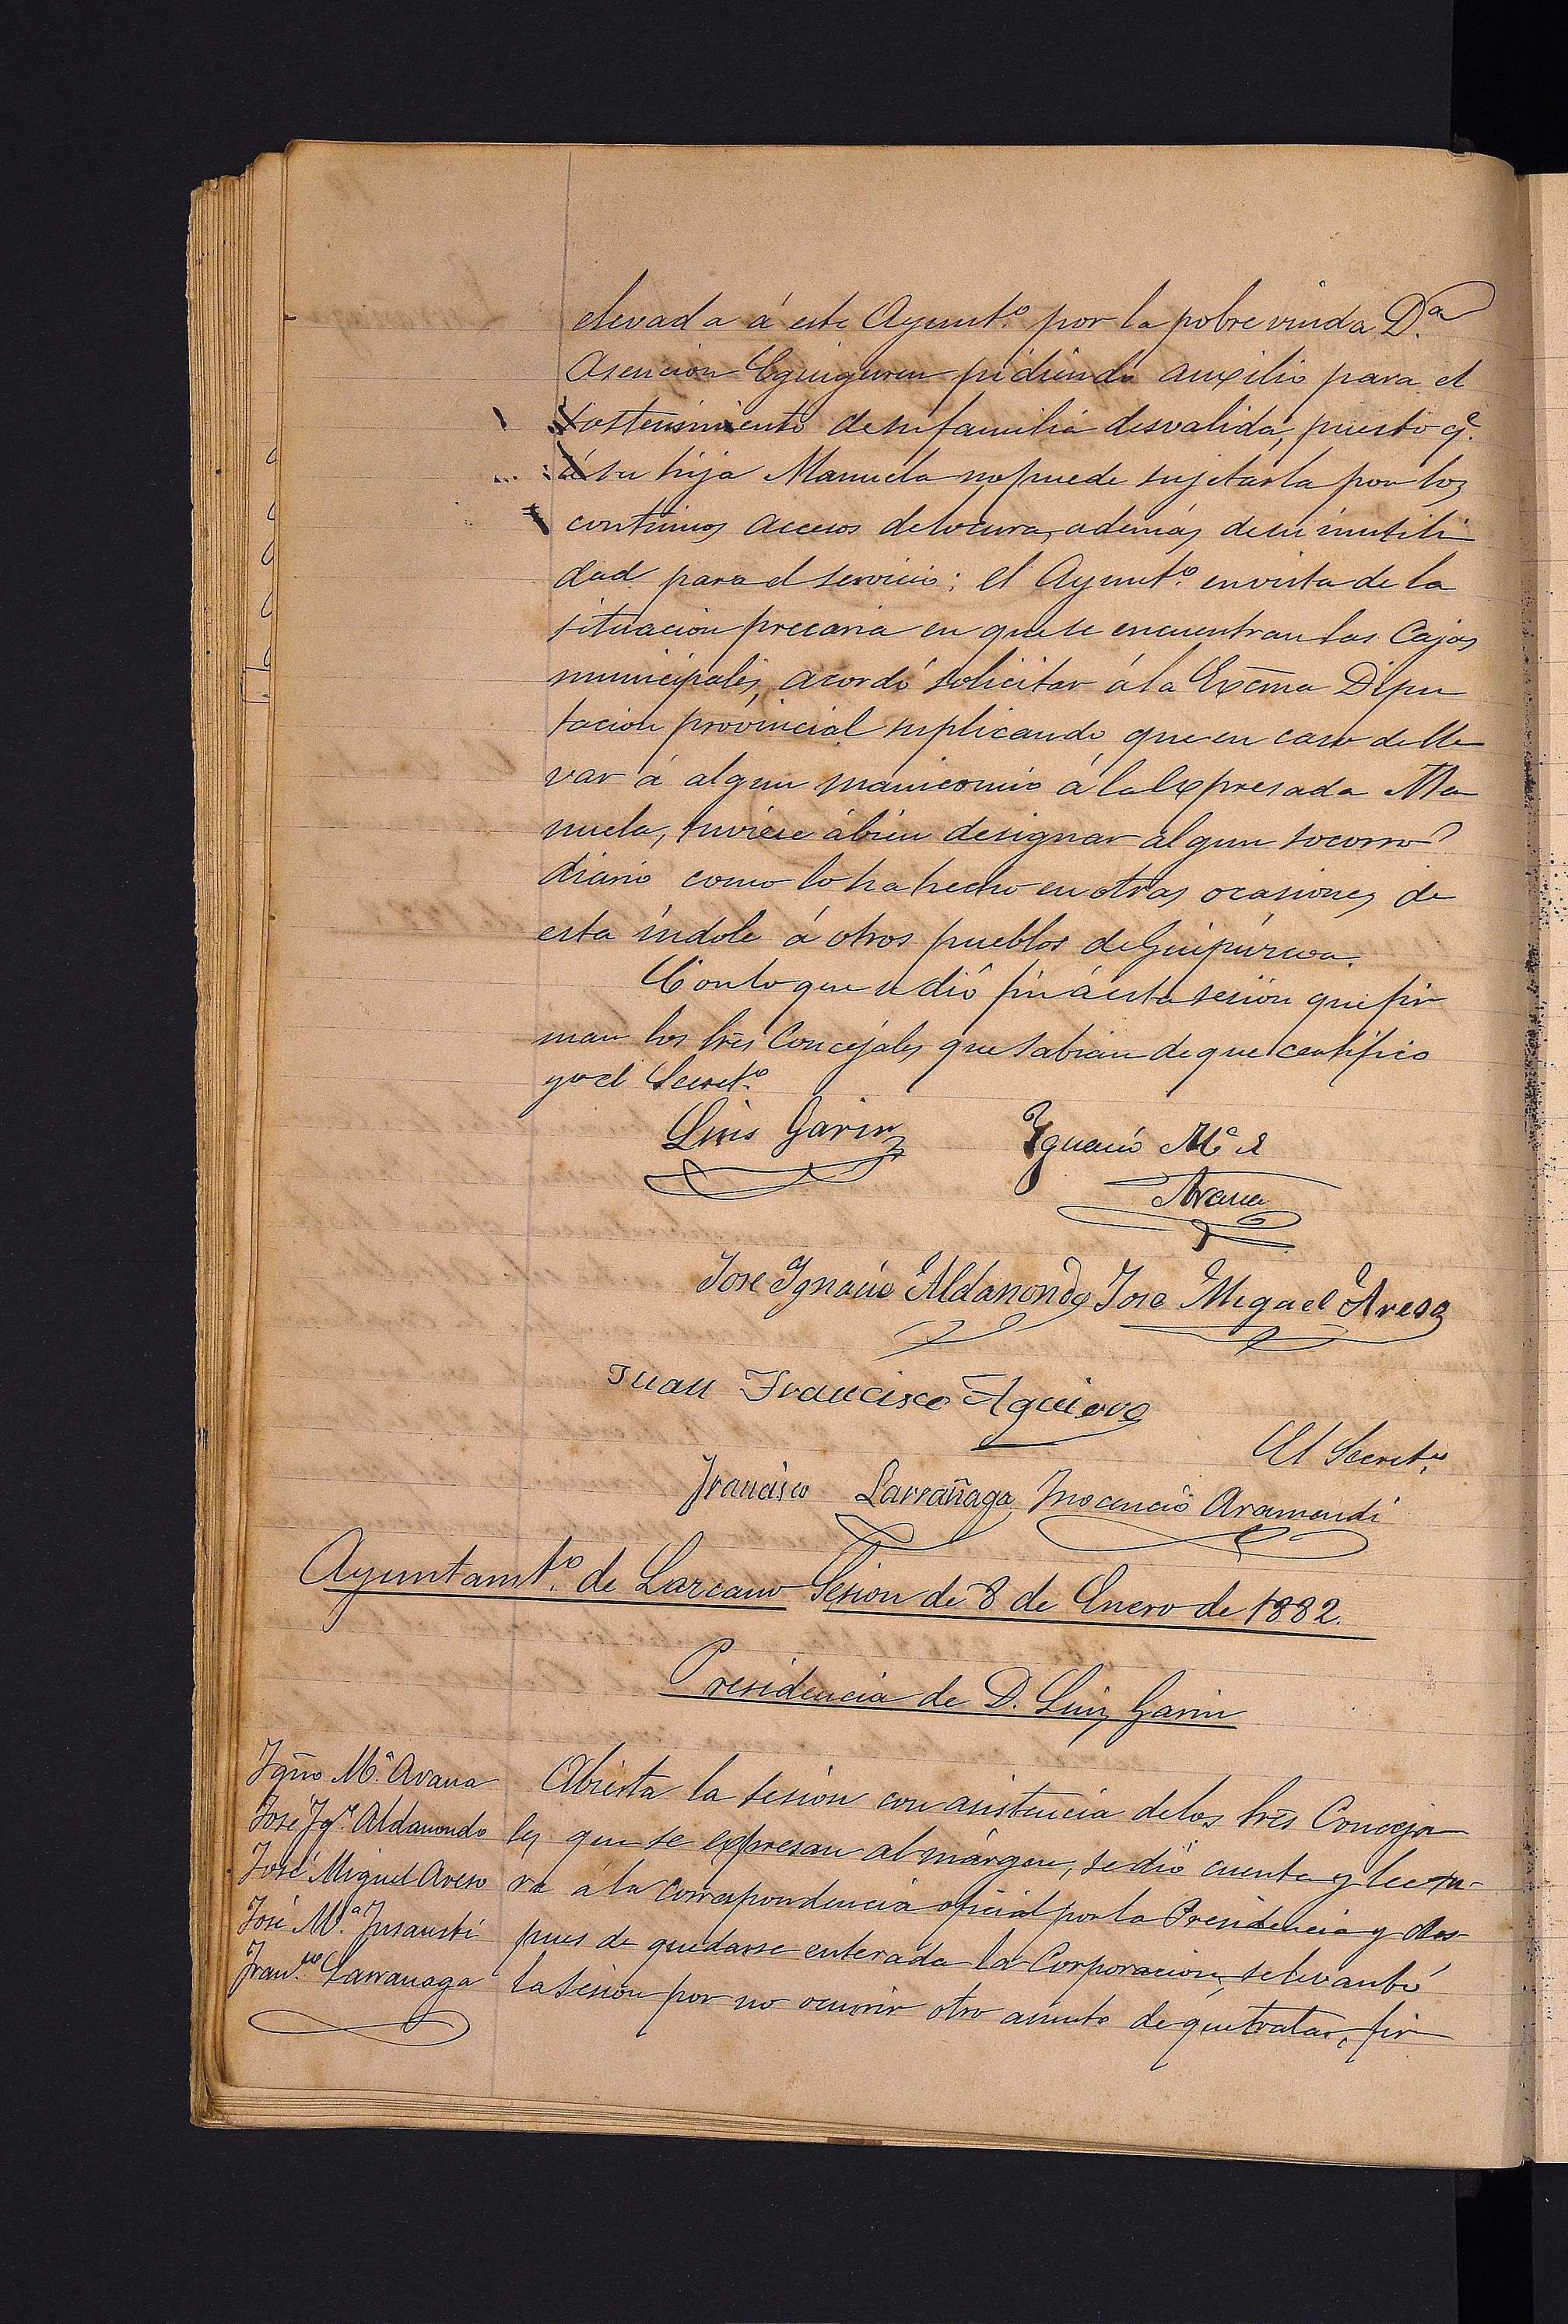 elevada á este Ayunt.º por la pobre viuda D.ª
Asencion Eguiguren pidiendo auxilio para el
sostenimiento de su familia desvalida, puesto q.e
á su hija Manuela no puede sujetarla por los
contínuos accesos de locura, además de su inutili
dad para el servicio: el Ayunt.º en vista de la
situacion precaria en que se encuentran las Cajas
municipales, acordó solicitar á la Excma Dipu
tacion provincial suplicando, que en caso de lle
var á algun manicomio á la expresada Ma
nuela, tuviese á bien designar algun socorro
diario como lo ha hecho en otras ocasiones de
esta índole á otros pueblos de Guipúzcoa.
Con lo que se dió fin á esta sesion que fir
man los Sres Concejales que sabian de que certifico
yo el Secret.º
Luis Garin
Ygnacio M.ª
Arana
José Ygnacio Aldanondo José Miguel Areso
Juan Francisco Aguirre
El Secret.º
Francisco Larrañaga Inocencio Aramendi
Ayuntamt.º de Lazcano Sesion de 8 de Enero de 1882.
Presidencia de D. Luis Garin
Ygno M.ª Arana
José Yg.º Aldanondo
José Miguel Areso
José M.ª Insausti
Fran.co Larrañaga
Abierta la sesion con asistencia de los Sres Conceja
les que se expresan al márgen, se dió cuenta y lectu-
ra á la correspondencia oficial por la Presidencia y des-
pues de quedarse enterada la Corporacion, se levantó
la sesion por no ocurrir otro asunto de que tratar, fir